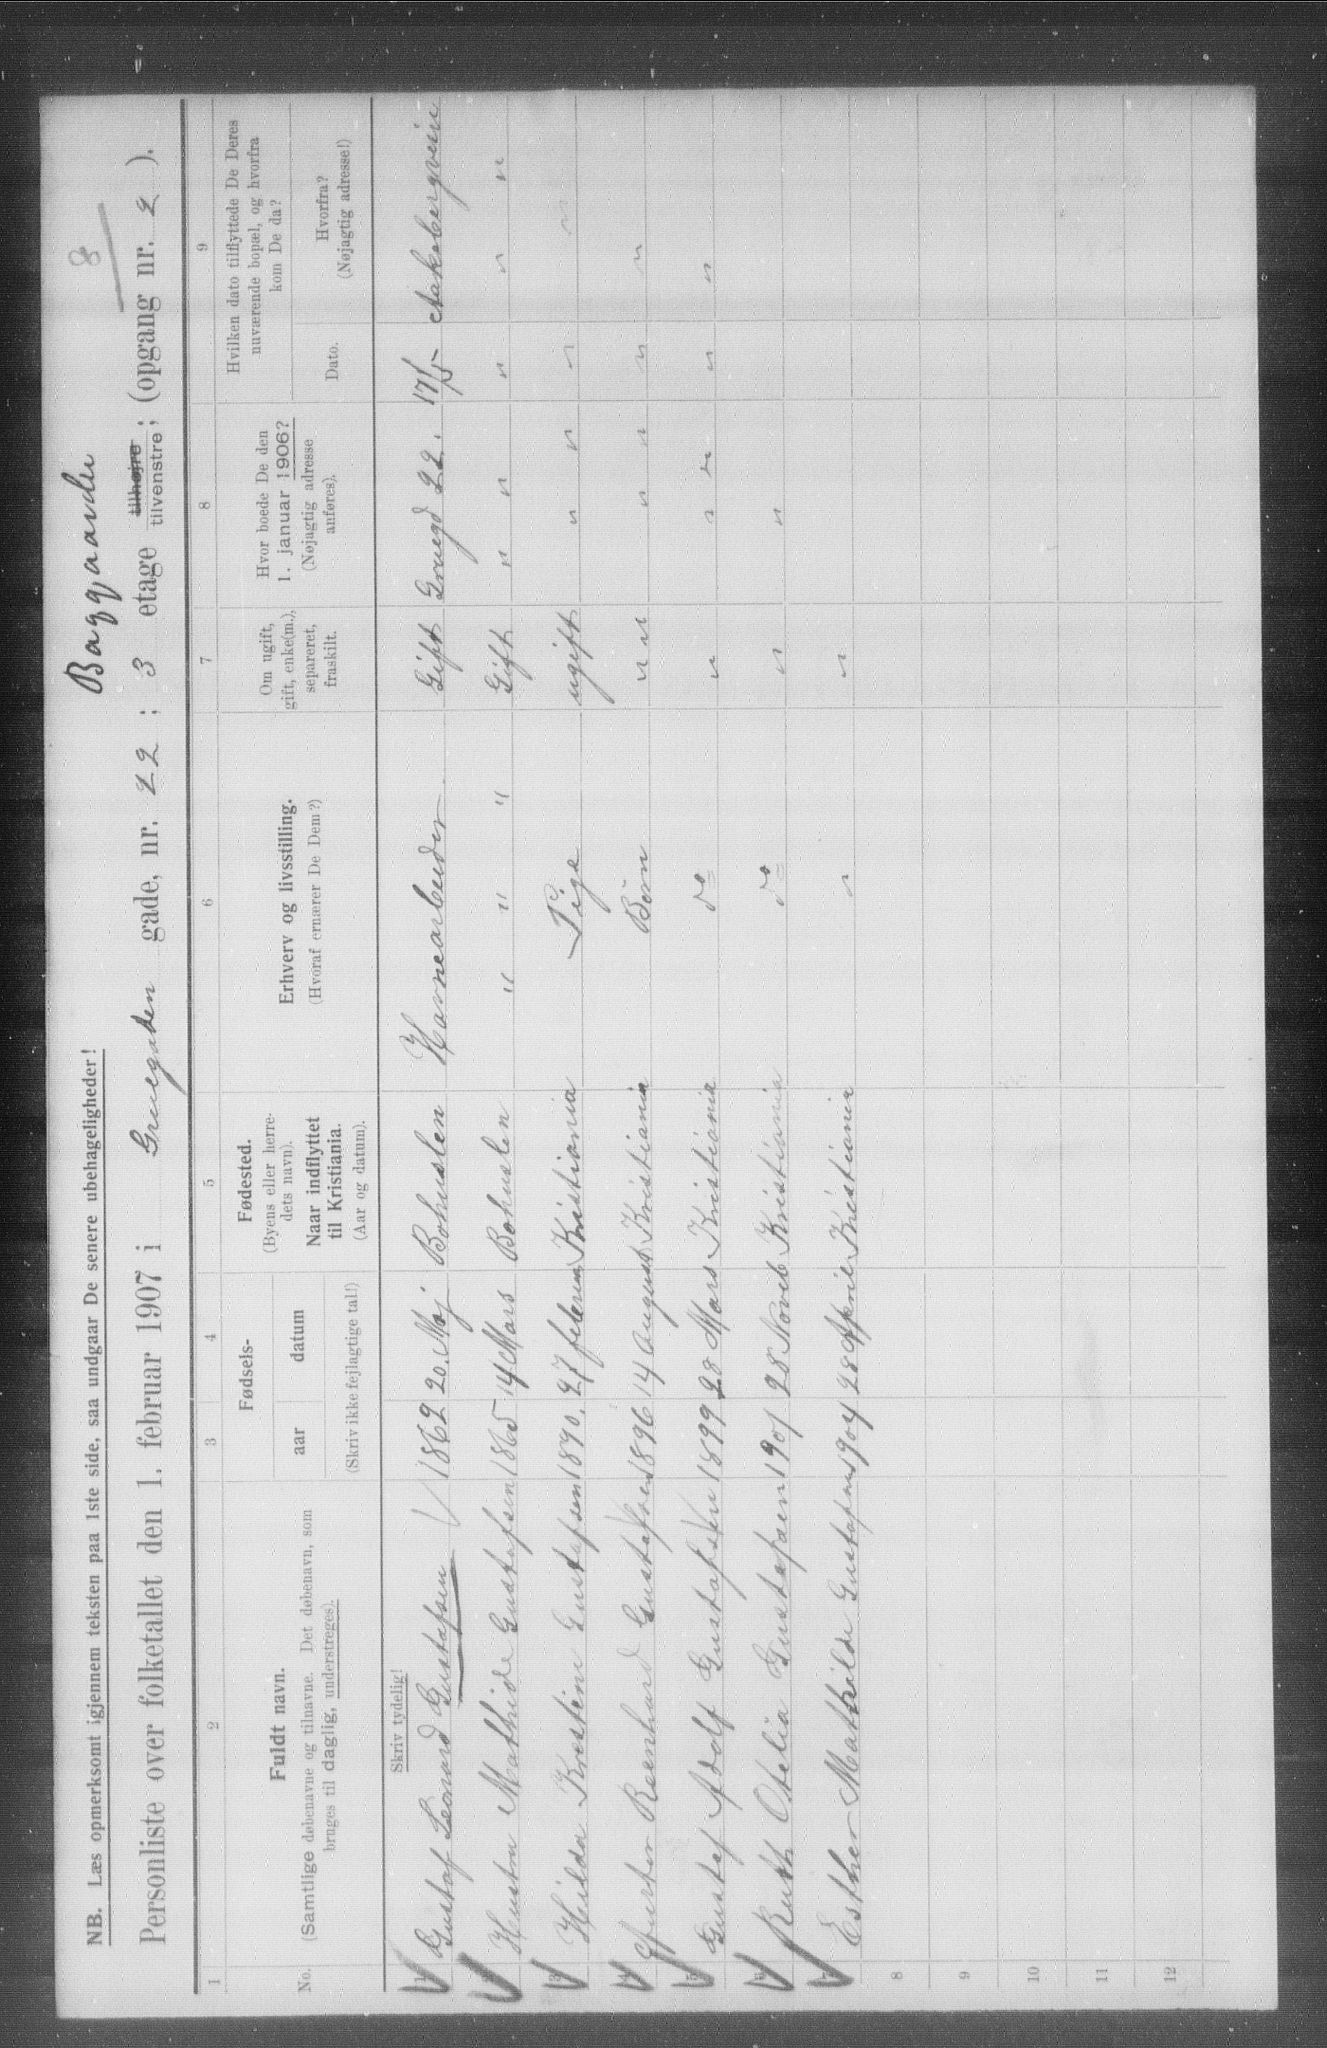 Baggaarde 8
NB. Læs opmerksomt igjennem teksten paa 1ste side, saa undgaar De senere ubehageligheder!
Personliste over folketallet den 1. februar 1907 i Gruegaden gade, nr. 22 ; 3 etage tilhøjre tilvenstre; (opgang nr. 2 ).
1 2 3 4 5 6 7 8 9
No. Fuldt navn. (Samtlige døbenavne og tilnavne. Det døbenavn, som bruges til daglig, understreges).
Fødsels- aar datum (Skriv ikke fejlagtige tal!)
Fødested. (Byens eller herredets navn). Naar indflyttet til Kristiania. (Aar og datum).
Erhverv og livsstilling. (Hvoraf ernærer De Dem?)
Om ugift, gift, enke(m.), separeret, fraskilt.
Hvor boede De den 1. januar 1906? (Nøjagtig adresse anføres).
Hvilken dato tilflyttede De Deres nuværende bopæl, og hvorfra kom De da? Dato. Hvorfra? (Nøjagtig adresse!)
Skriv tydelig!
1 Gustaf Leonard Gustafsen 1862 20. Maj Bohuslen Havnearbeider Gift Gruegd 22. 17/5
2 Hustru Mathide Gustafsen 1865 14 Mars Bohuslen " " " Gift " " " " "
3 Hilda Kristine Gustafsen 1890. 27 Kristiania Pige ugift " " " "
4 Reenhard Gustafsen 1896 14 August Kristiania Børn " " " " " "
5 Gustaf Adolf Gustafsen 1899 28 Mars Kristiania do " " " " "
6 Ruth Otelia Gustafsen 1901 28 Noveb Kristiania do " "
7 Esther Mathilde Gustafsen 1904 28 April Kristiania " "
8
9
10
11
12